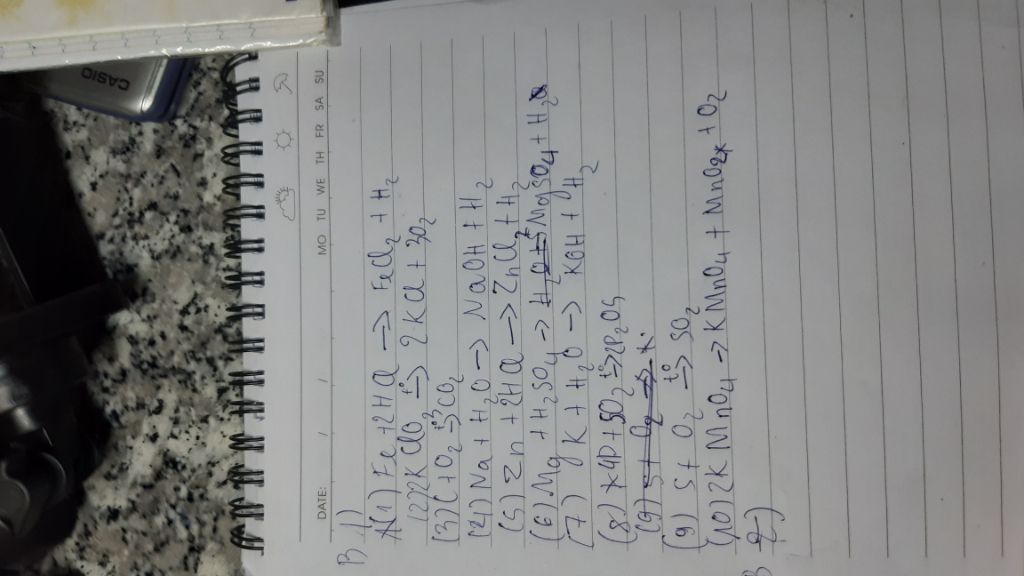 CASIO
MO TU WE TH FR SA SU
DATE: / /
B 1)
A(1) Fe + 2HCl → FeCl2 + H2
(2) 2KClO3 t°→ 2KCl + 3O2
(3) C + O2 t°→ CO2
(4) Na + H2O → NaOH + H2
(5) Zn + 2HCl → ZnCl2 + H2
(6) Mg + H2SO4 → MgSO4 + H2
(7) K + H2O → KOH + H2
(8) 4P + 5O2 t°→ 2P2O5
(9) S + O2 →
(9) S + O2 t°→ SO2
(10) 2KMnO4 → KMnO4 + MnO2 + O2
B 2)